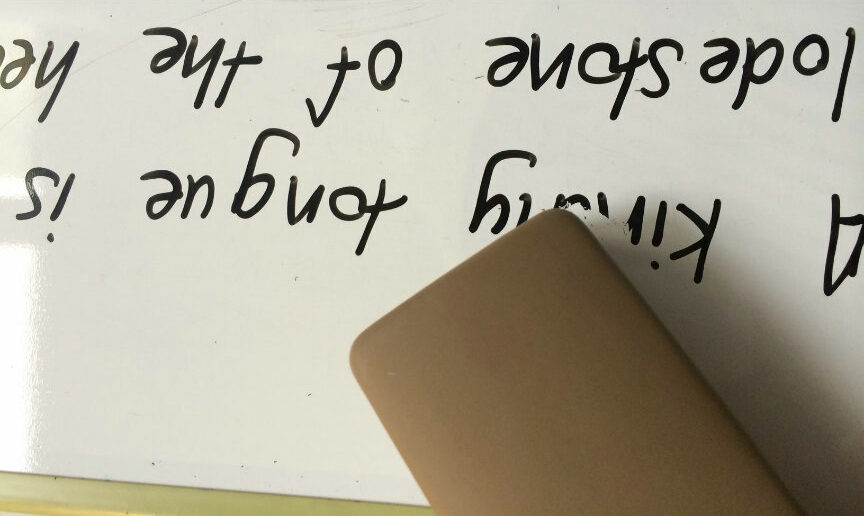 A kindly tongue is
lodestone of the he